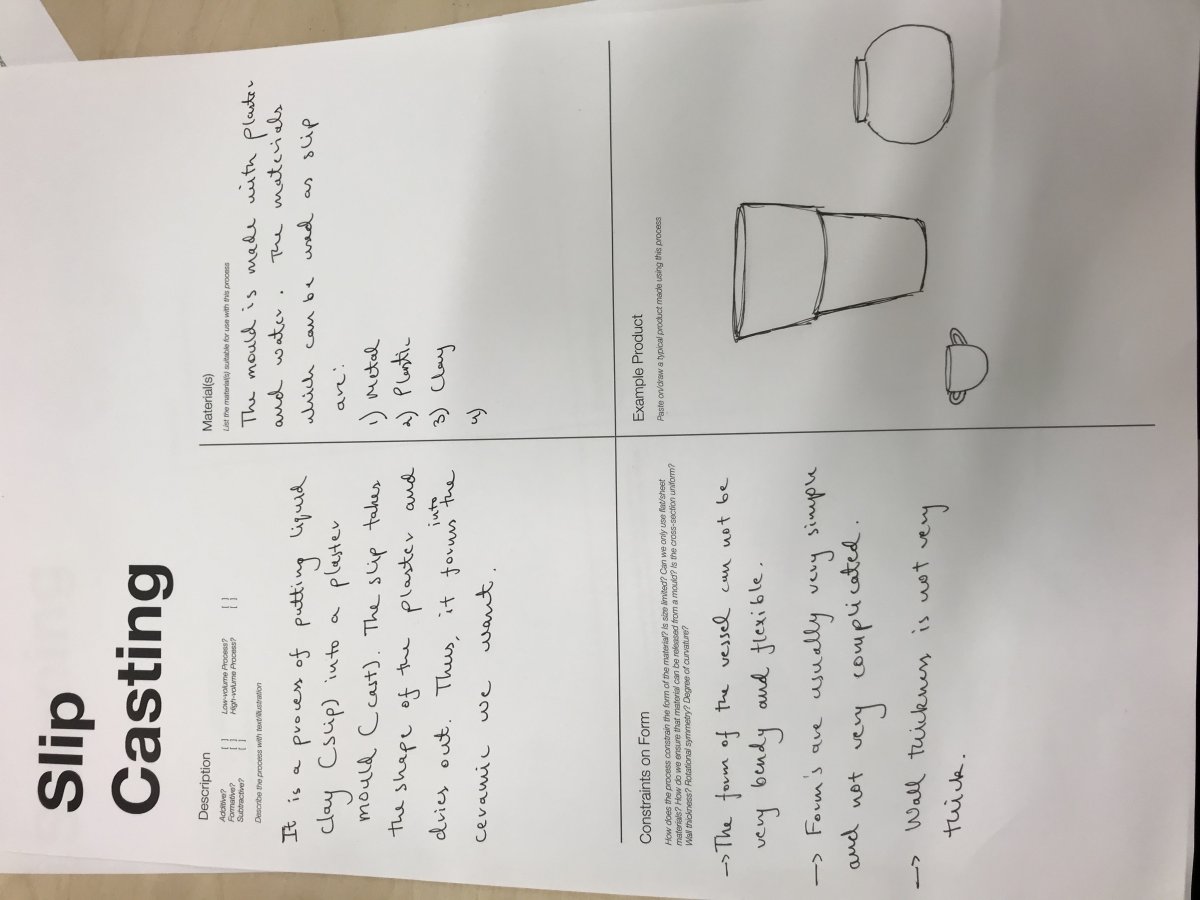 Slip
Casting
Description
Additive? [ ] Low-volume Process? [ ]
Formative? [ ] High-volume Process? [ ]
Subtractive? [ ]
Describe the process with text/illustration
It is a process of putting liquid
clay (slip) into a plaster
mould (cast). The slip takes
the shape of the plaster and
dries out. Thus, it forms into the
ceramic we want.
Material(s)
List the material(s) suitable for use with this process
The mould is made with plaster
and water. The materials
which can be used as slip
are:
1) Metal
2) Plastic
3) Clay
4)
Constraints on Form
How does the process constrain the form of the material? Is size limited? Can we only use flat/sheet
materials? How do we ensure that material can be released from a mould? Is the cross-section uniform?
Wall thickness? Rotational symmetry? Degree of curvature?
→ The form of the vessel can not be
very bendy and flexible.
→ Form's are usually very simple
and not very complicated.
→ Wall thickness is not very
thick.
Example Product
Paste on/draw a typical product made using this process